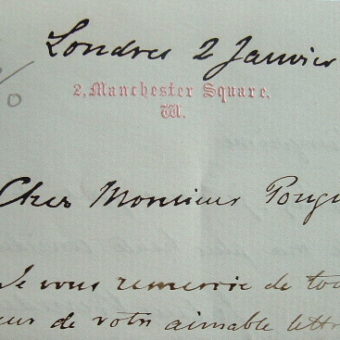 Londres 2 Janvier
2, Manchester Square.
W.
Cher Monsieur Poug
Je vous remercie de tou
eur de votre aimable lettr